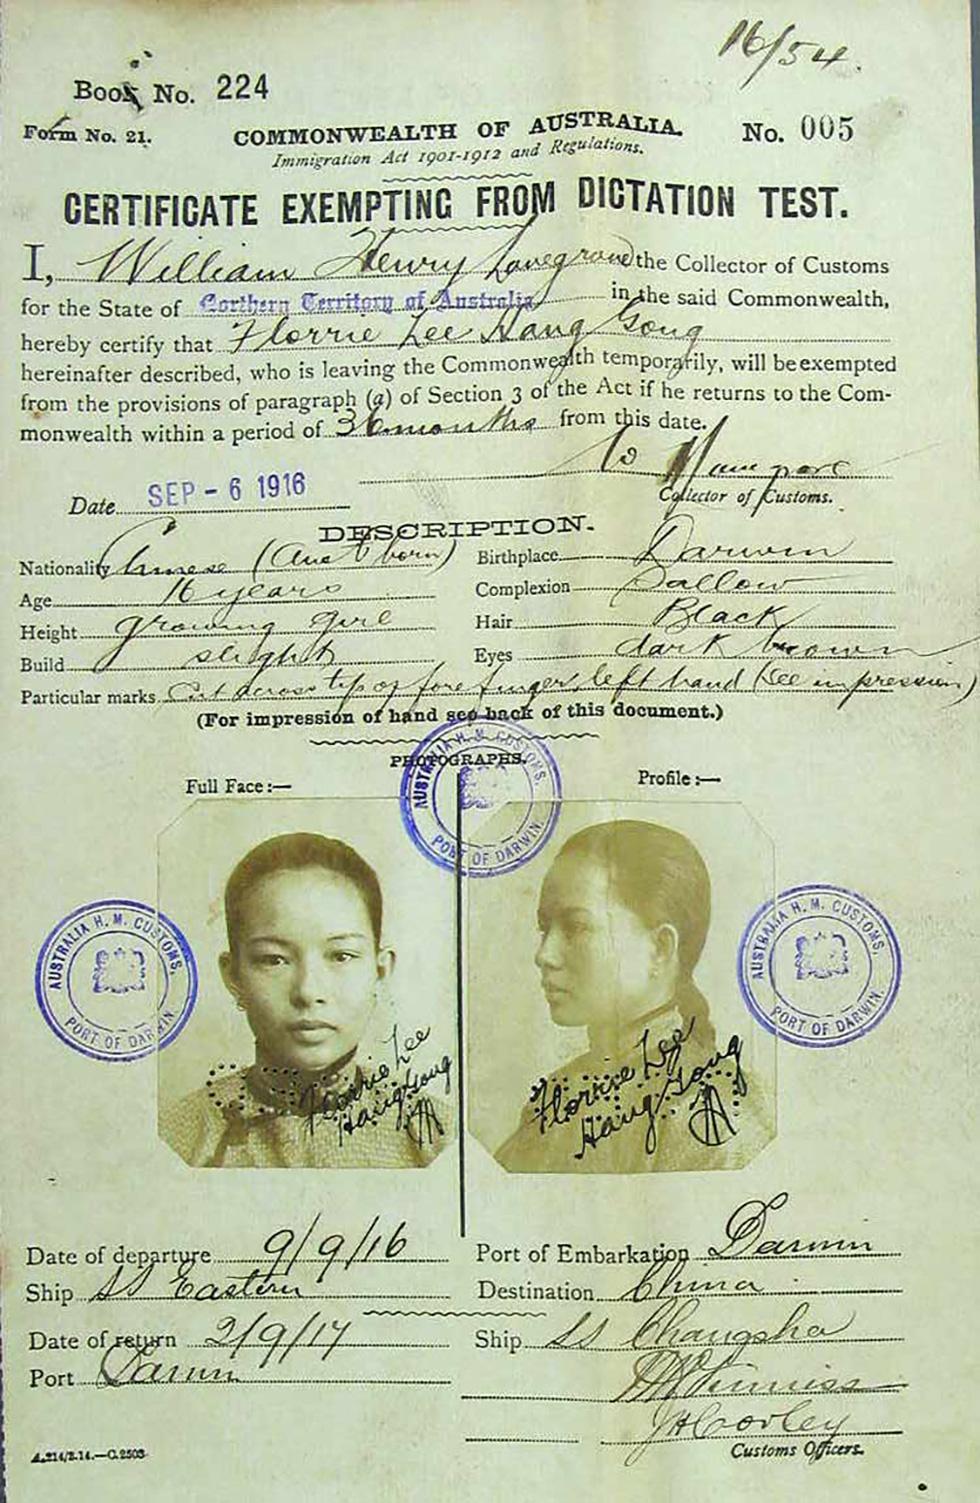 16/54.
Book No. 224
Form No. 21. COMMONWEALTH OF AUSTRALIA. No. 005
Immigration Act 1901-1912 and Regulations.
CERTIFICATE EXEMPTING FROM DICTATION TEST.
I, William Henry Lovegrove the Collector of Customs
for the State of Northern Territory of Australia in the said Commonwealth,
hereby certify that Florrie Lee Hang Gong
hereinafter described, who is leaving the Commonwealth temporarily, will be exempted
from the provisions of paragraph (a) of Section 3 of the Act if he returns to the Com-
monwealth within a period of 36 months from this date.
Date SEP - 6 1916
Collector of Customs.
DESCRIPTION.
Nationality Chinese (Aust born) Birthplace Darwin
Age 16 years Complexion Sallow
Height growing girl Hair Black
Build slight Eyes dark brown
Particular marks Cut across tip of fore finger, left hand (See impression)
(For impression of hand see back of this document.)
PHOTOGRAPHS.
Full Face:— Profile:—
AUSTRALIA H. M. CUSTOMS. PORT OF DARWIN.
AUSTRALIA H. M. CUSTOMS. PORT OF DARWIN.
AUSTRALIA H. M. CUSTOMS. PORT OF DARWIN.
Florrie Lee Hang Gong
Florrie Lee Hang Gong
Date of departure 9/9/16 Port of Embarkation Darwin
Ship SS Eastern Destination China
Date of return 2/9/17 Ship SS Changsha
Port Darwin
Customs Officers.
A.214/2.14.—C.2503